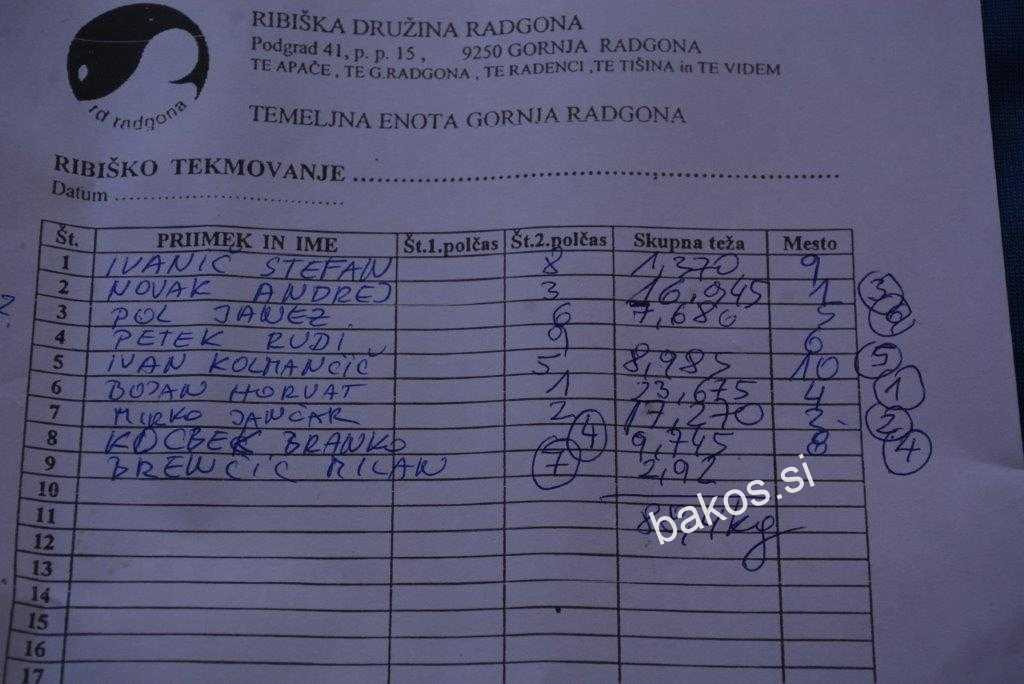 RIBIŠKA DRUŽINA RADGONA
Podgrad 41, p. p. 15 , 9250 GORNJA RADGONA
TE APAČE , TE G.RADGONA , TE RADENCI ,TE TIŠINA in TE VIDEM
rd radgona
TEMELJNA ENOTA GORNJA RADGONA
RIBIŠKO TEKMOVANJE
Datum
Št. PRIIMEK IN IME Št.1.polčas Št.2.polčas Skupna teža Mesto
1 IVANIČ ŠTEFAN 8 1,370 9
2 NOVAK ANDREJ 3 16,045 1 3
3 POL JANEZ 6 7,686 5 6
4 PETEK RUDI 9 6
5 IVAN KOLMANČIČ 5 8,985 10 5
6 BOJAN HORVAT 1 23,675 4 1
7 MIRKO JANČAR 2 17,270 3 2
8 KOCBEK BRANKO 4 9,745 8 4
9 BRENČIČ MILAN 7 2,92
10
11 kg
bakos.si
12
13
14
15
16
17